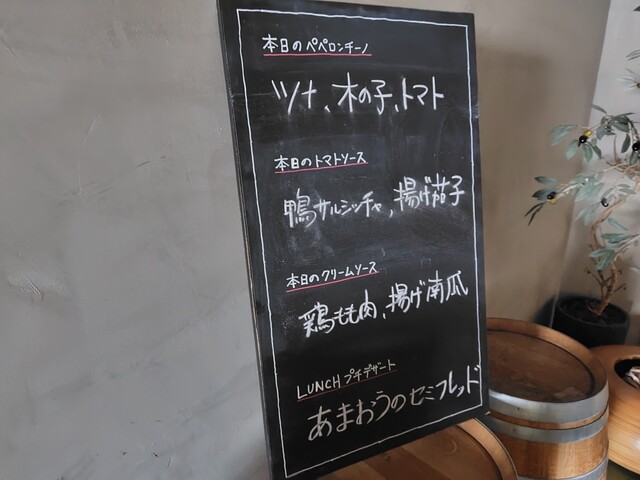 本日のペペロンチーノ
ツナ、木の子、トマト
本日のトマトソース
鴨サルシッチャ、揚げ茄子
本日のクリームソース
鶏もも肉、揚げ南瓜
LUNCH プチデザート
あまおうのセミフレッド